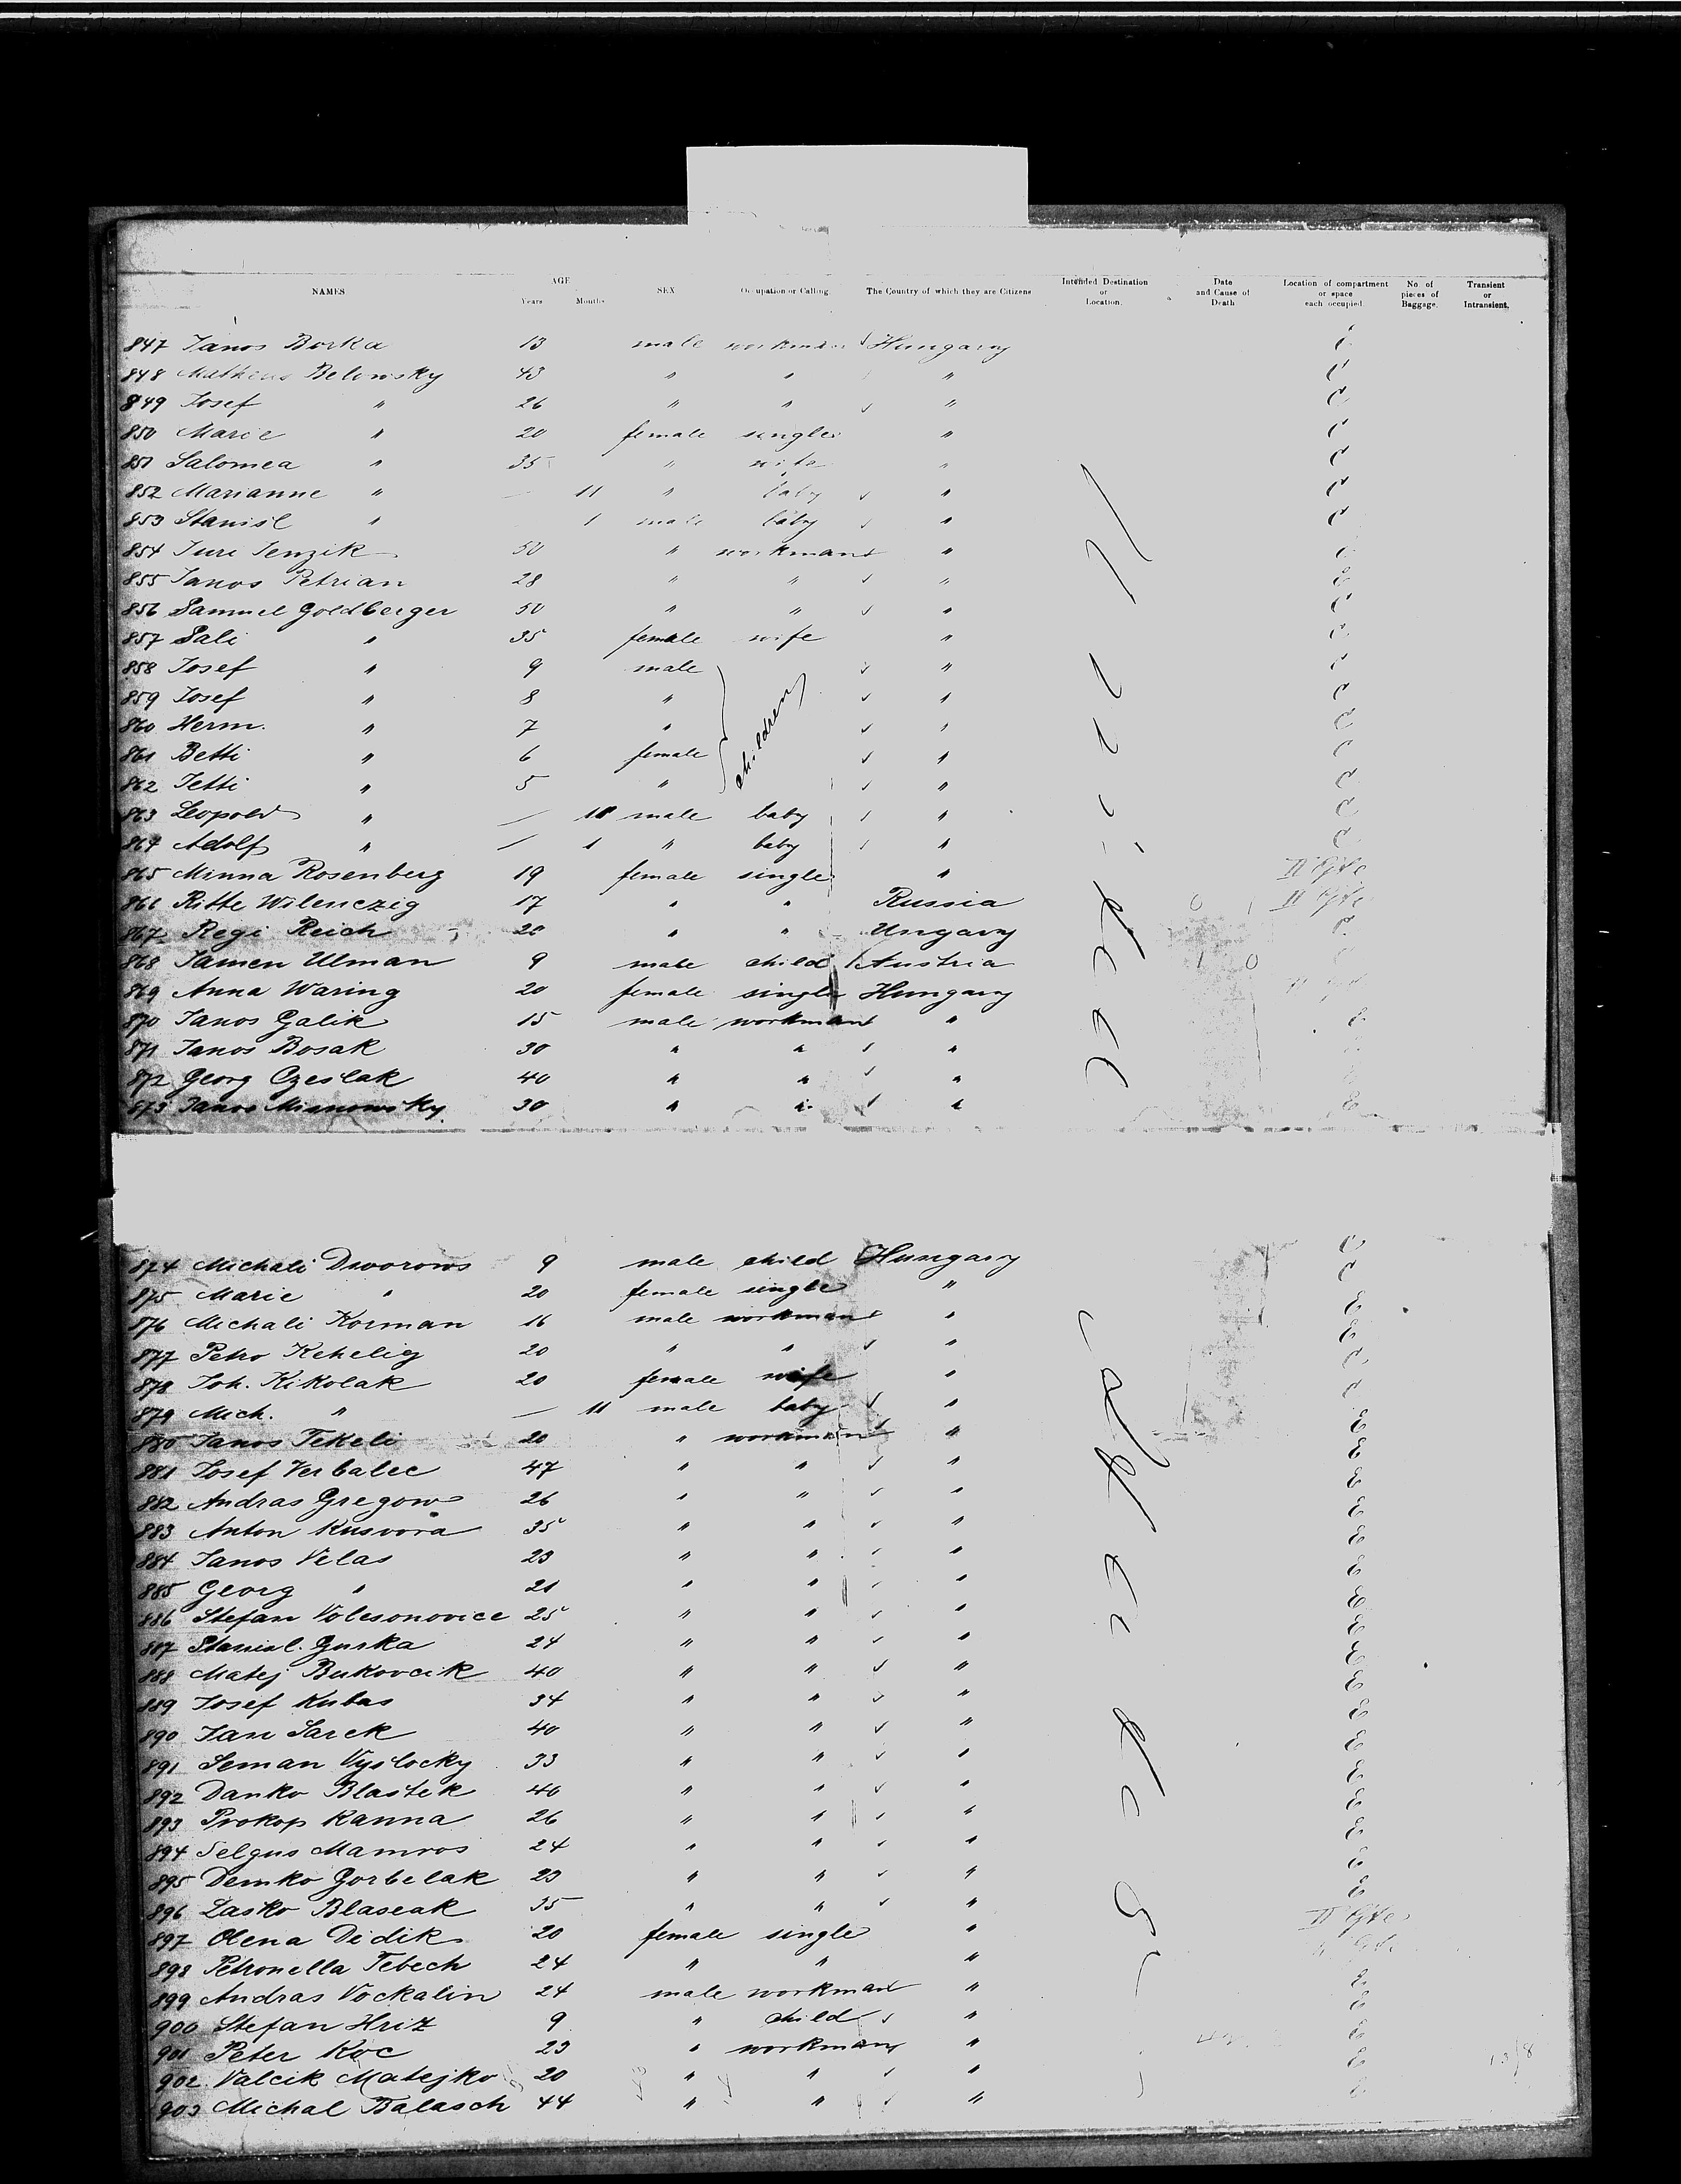 NAMES AGE Years Months SEX Occupation or Calling The Country of which they are Citizens Intended Destination or Location. Date and Cause of Death Location of compartment or space each occupied. No of pieces of Baggage. Transient or Intransient.
847 Janos Borka 13 male workman Hungary
848 Mathias Belowsky 43 " " " C
849 Josef " 26 " " " C
850 Marie " 20 female single " C
851 Salomea " 35 " wife " C
852 Marianne " — 11 " baby " C
853 Stanisl " 1 male baby " C
854 Juri Jenzik 50 " workman "
855 Janos Petrian 28 " " " E
856 Samuel Goldberger 50 " " " C
857 Sali " 35 female wife " C
858 Josef " 9 male children " C
859 Josef " 8 " " C
860 Herm. " 7 " " C
861 Betti " 6 female " C
862 Jetti " 5 " " C
863 Leopold " — male baby " C
864 Adolf " — 1 " baby " C
865 Minna Rosenberg 19 female single " II Gte
866 Ritte Wilenczig 17 " " Russia 0 1 II Gte
867 Regi Reich 20 " " Ungary
868 Jamen Ulman 9 male child Austria 1 0
869 Anna Waring 20 female single Hungary
870 Janos Galik 15 male workman " E
871 Janos Bosak 30 " " "
872 Georg Czeslak 40 " " "
873 Janos Misnowsky 30 " " " E
874 Michali Dworows 9 male child Hungary C
875 Marie " 20 female single " C
876 Michali Korman 16 male workman " E
877 Petro Kehelig 20 " " " E
878 Joh. Kikolak 20 female wife " C
879 Mich. " — 11 male baby " C
880 Janos Tekeli 20 " workman " E
881 Josef Verbalec 47 " " " E
882 Andras Gregow 26 " " " E
883 Anton Kusvora 35 " " " E
884 Janos Velas 23 " " " E
885 Georg " 21 " " " E
886 Stefan Volesonovice 25 " " " E
887 Stanisl. Gurka 24 " " " E
888 Matej Bukovcik 40 " " " E
889 Josef Kubas 34 " " " E
890 Jan Sarek 40 " " " E
891 Seman Vyslocky 33 " " " E
892 Danko Blastek 40 " " " E
893 Prokop Kanna 26 " " " E
894 Selgus Mamros 24 " " " E
895 Demko Gorbelak 23 " " " E
896 Lasko Blaseak 35 " " " E
897 Olena Didik 20 female single " II Gte
898 Petronella Tebech 24 " " " II Gte
899 Andras Vockalin 24 male workman " E
900 Stefan Hriz 9 " child " E
901 Peter Koc 23 " workman " E
902 Valcik Matejko 20 " " " E 13/8
903 Michal Balasch 44 " " " E